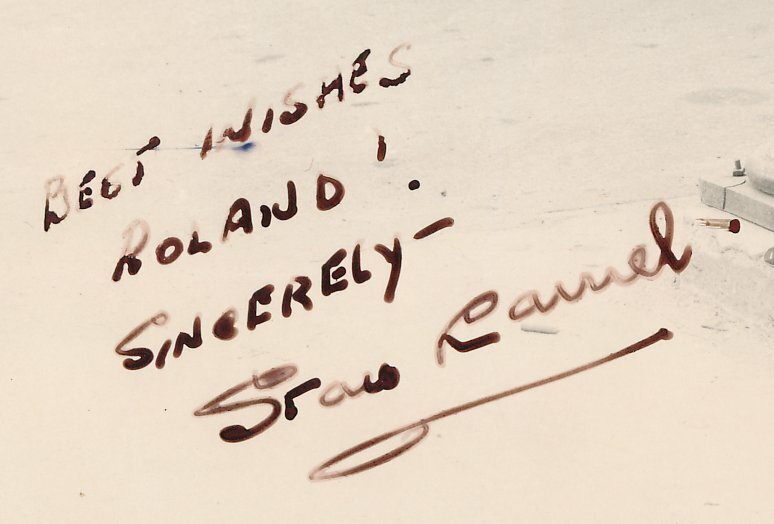 BEST WISHES
ROLAND!
SINCERELY—
Stan Laurel